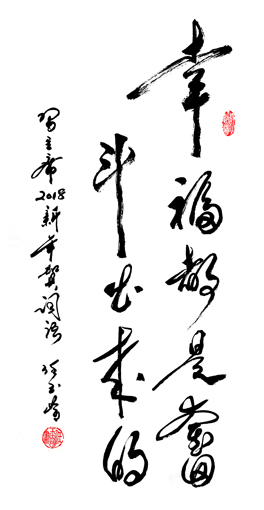 幸福都是奋
斗出来的
习主席2018新年贺词语